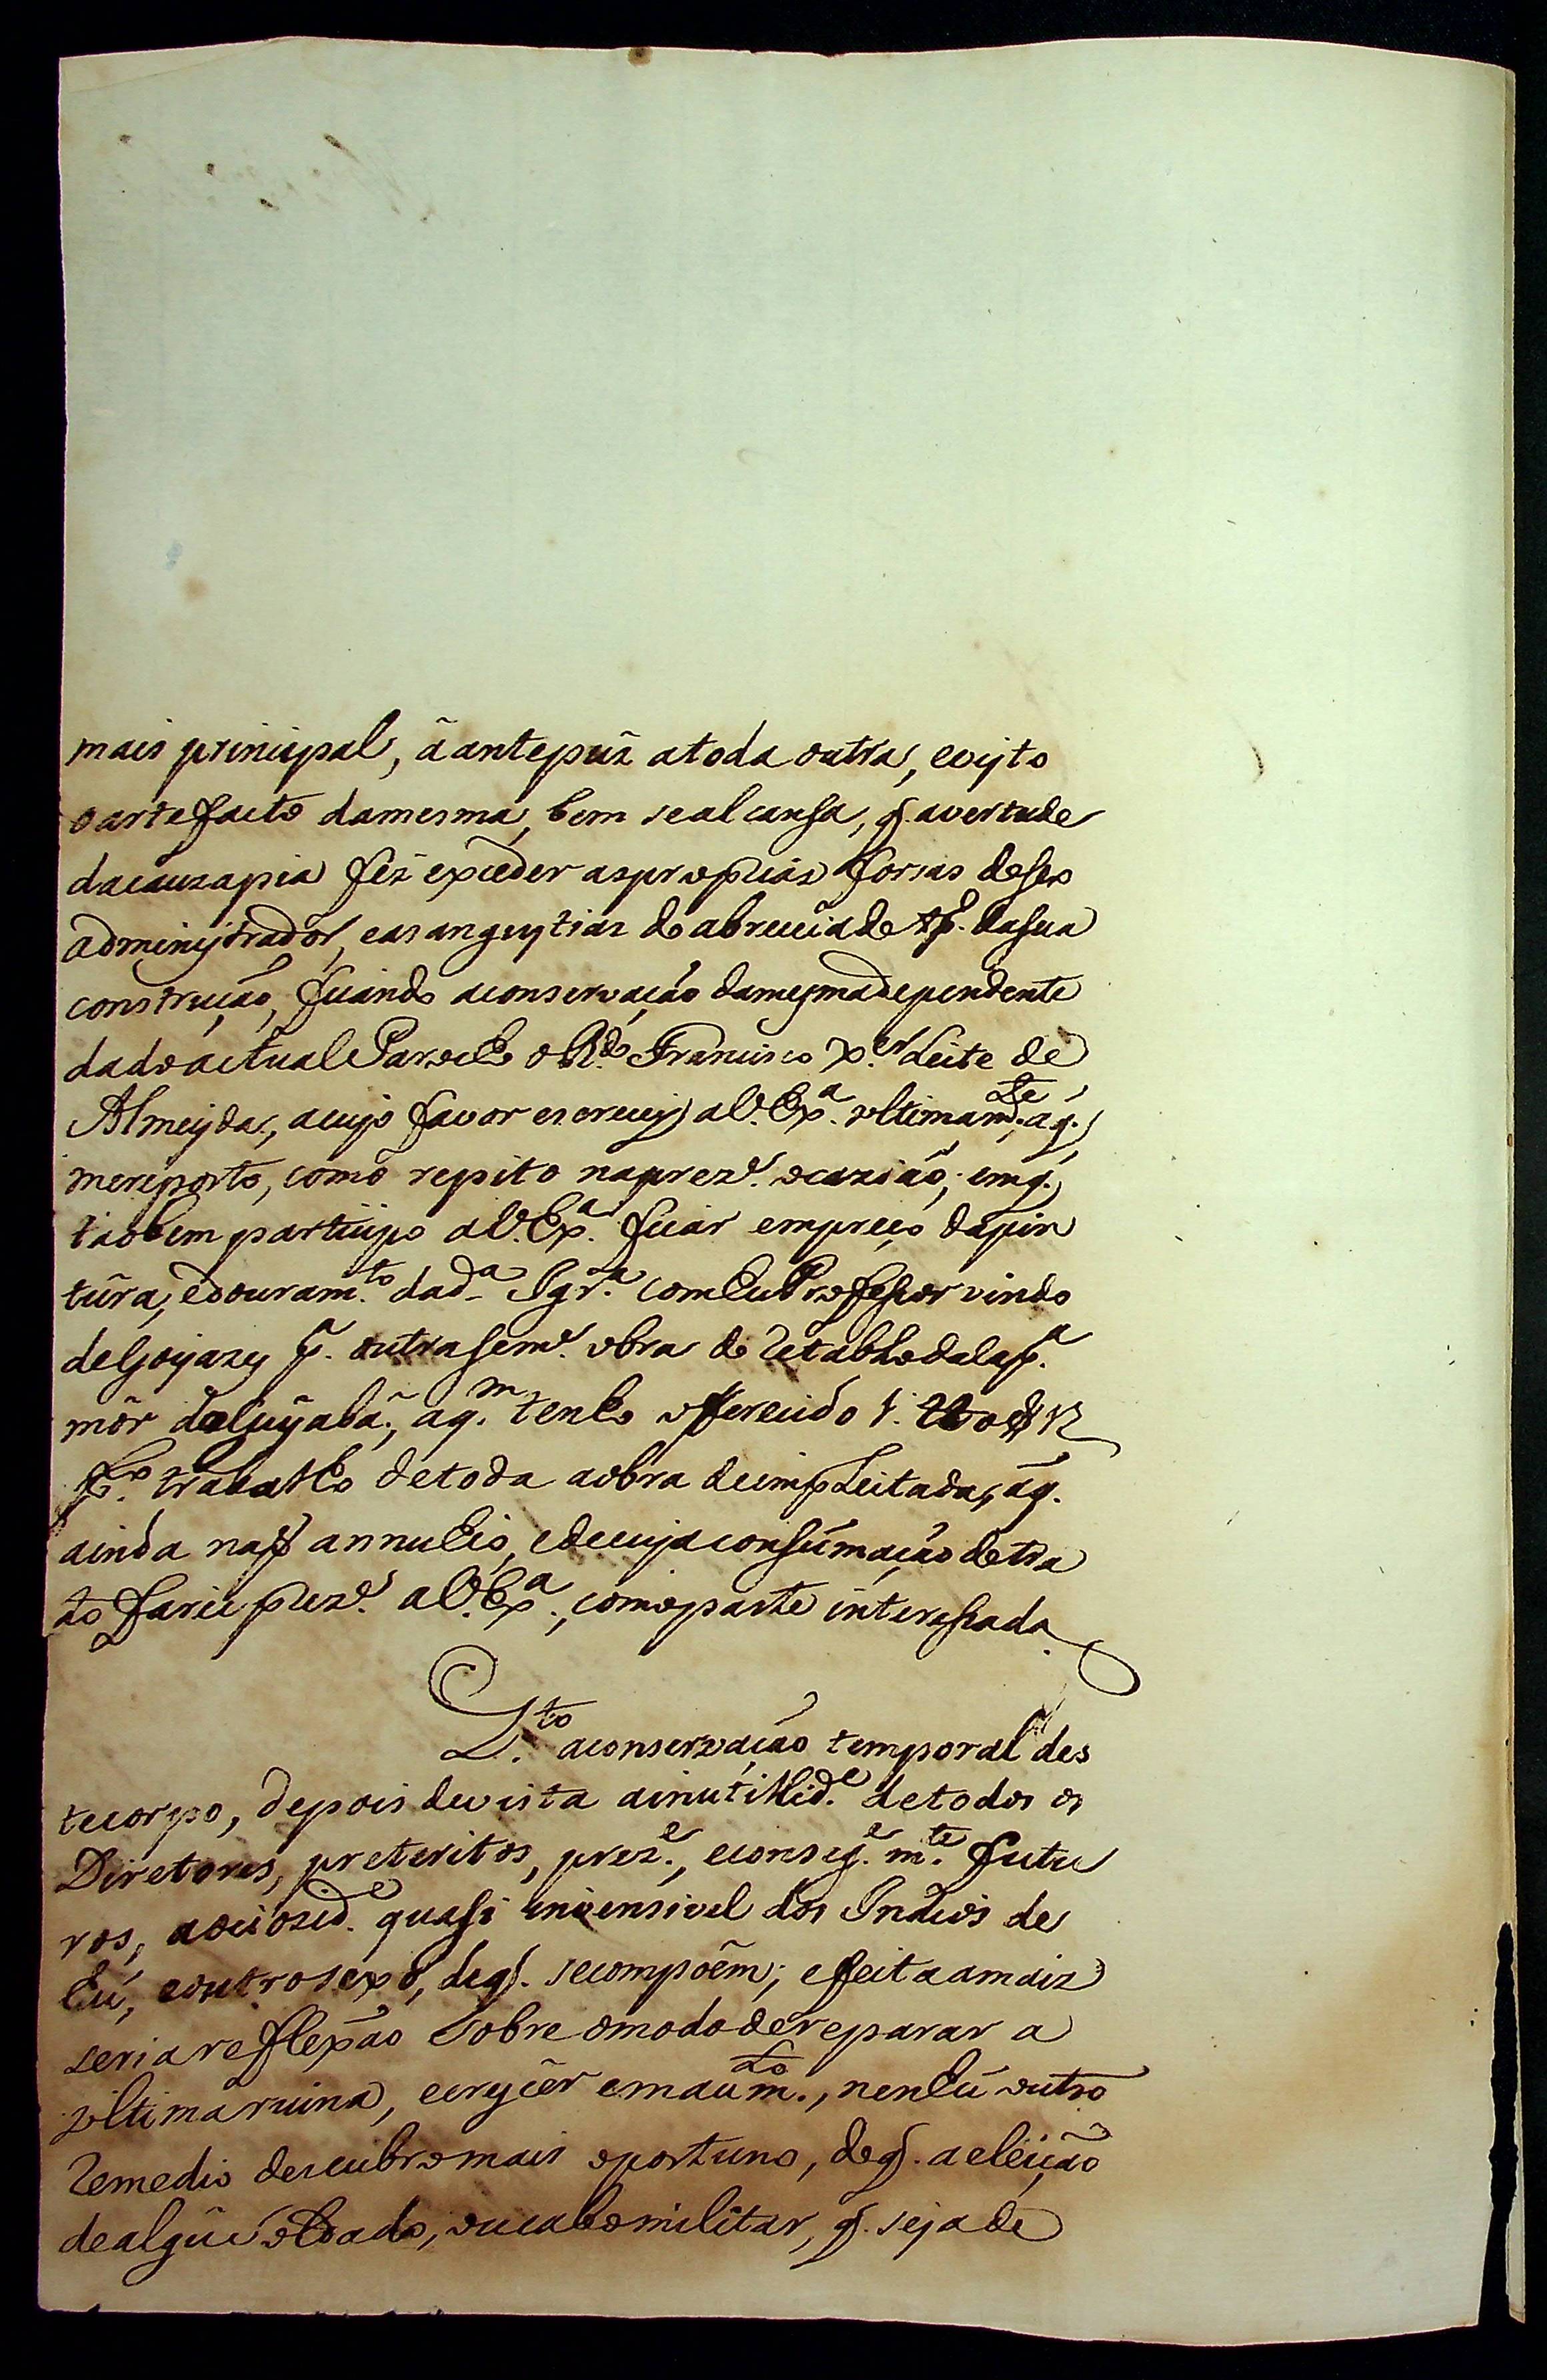 mais principal, ã antepuz atoda outra, evisto
oartefacto damesma, bem sealcansa, q. avertude
dacauzapia fez exceder asproprias forsas deseo
administrador, easangustias de abreviade tp. dasua
construção, ficando aconservação damesmadependente
dadoactualParocho oR.do Francisco X.er Leite de
Almeyda, acujo favor escrevy aV.Exa. ultimamte. aq.
mereporto, como repito napreze. ocazião; emq.
tãobem participo aV.Exa. ficar empreço dapin
tura, edouramto. dada Igra. comhuProfessor vindo
deGoyazes p. outraseme. obra de Retabhodalap.a
mór doCuyabá, aq.m tenho offerecido
po. trabalho detoda aobra deimpleitada, aq.
ainda não annuhio, edecujaconsumação detra
to farei preze. aV.Exa., comoparte interessada.
Q.to aconservação temporal des
tecorpo, depois devista ainutillide. detodos os
Diretores, preteritos, preze., econsege.mte. futu
ros, aociozide. quasi invensivel dos Indios de
hú, eoutrosexo, deq. secompõem; efeitaamaiz
seriareflexão sobre omododereparar a
ultimaruina, eergier emaum.to, nenhú outro
Remedio descubromais oportuno, deq. aeleição
dealgũ soldado, oucabomilitar, q. sejade